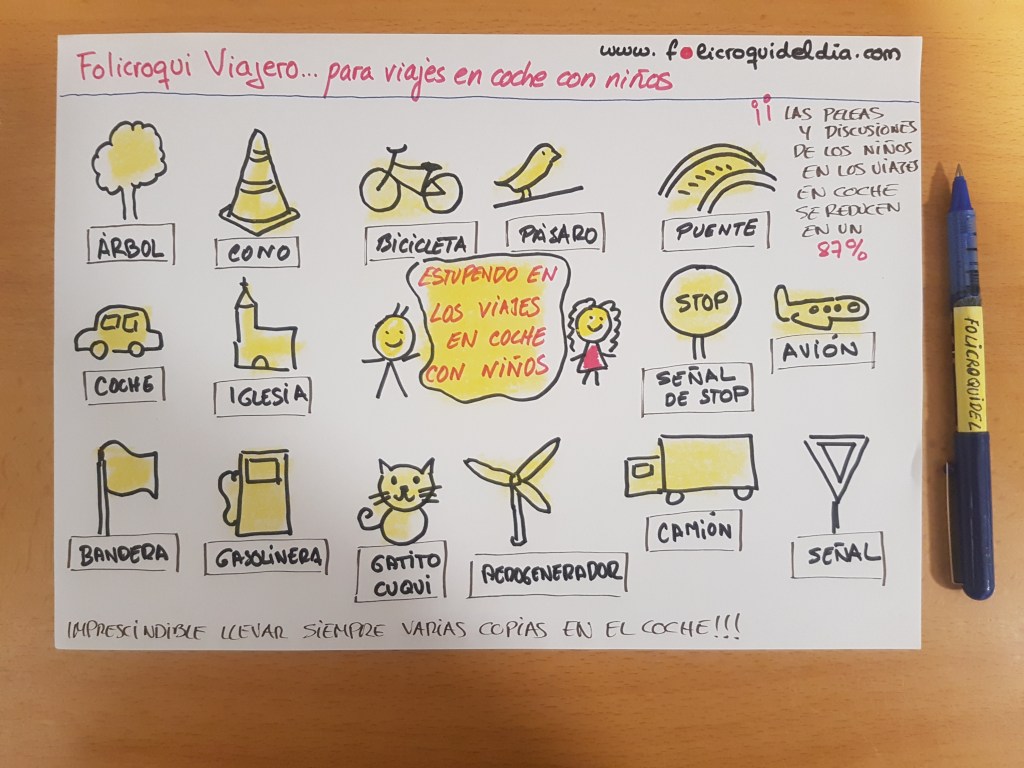 www. folicroquideldia.com
Folicroqui Viajero... para viajes en coche con niños
¡¡ LAS PELEAS
Y DISCUSIONES
DE LOS NIÑOS
EN LOS VIAJES
EN COCHE
SE REDUCEN
EN UN
87%
ÁRBOL
CONO
BICICLETA
PÁJARO
PUENTE
ESTUPENDO EN
LOS VIAJES
EN COCHE
CON NIÑOS
STOP
COCHE
IGLESIA
SEÑAL
DE STOP
AVIÓN
BANDERA
GASOLINERA
GATITO
CUQUI
AEROGENERADOR
CAMIÓN
SEÑAL
IMPRESCINDIBLE LLEVAR SIEMPRE VARIAS COPIAS EN EL COCHE!!!
FOLICROQUIDEL